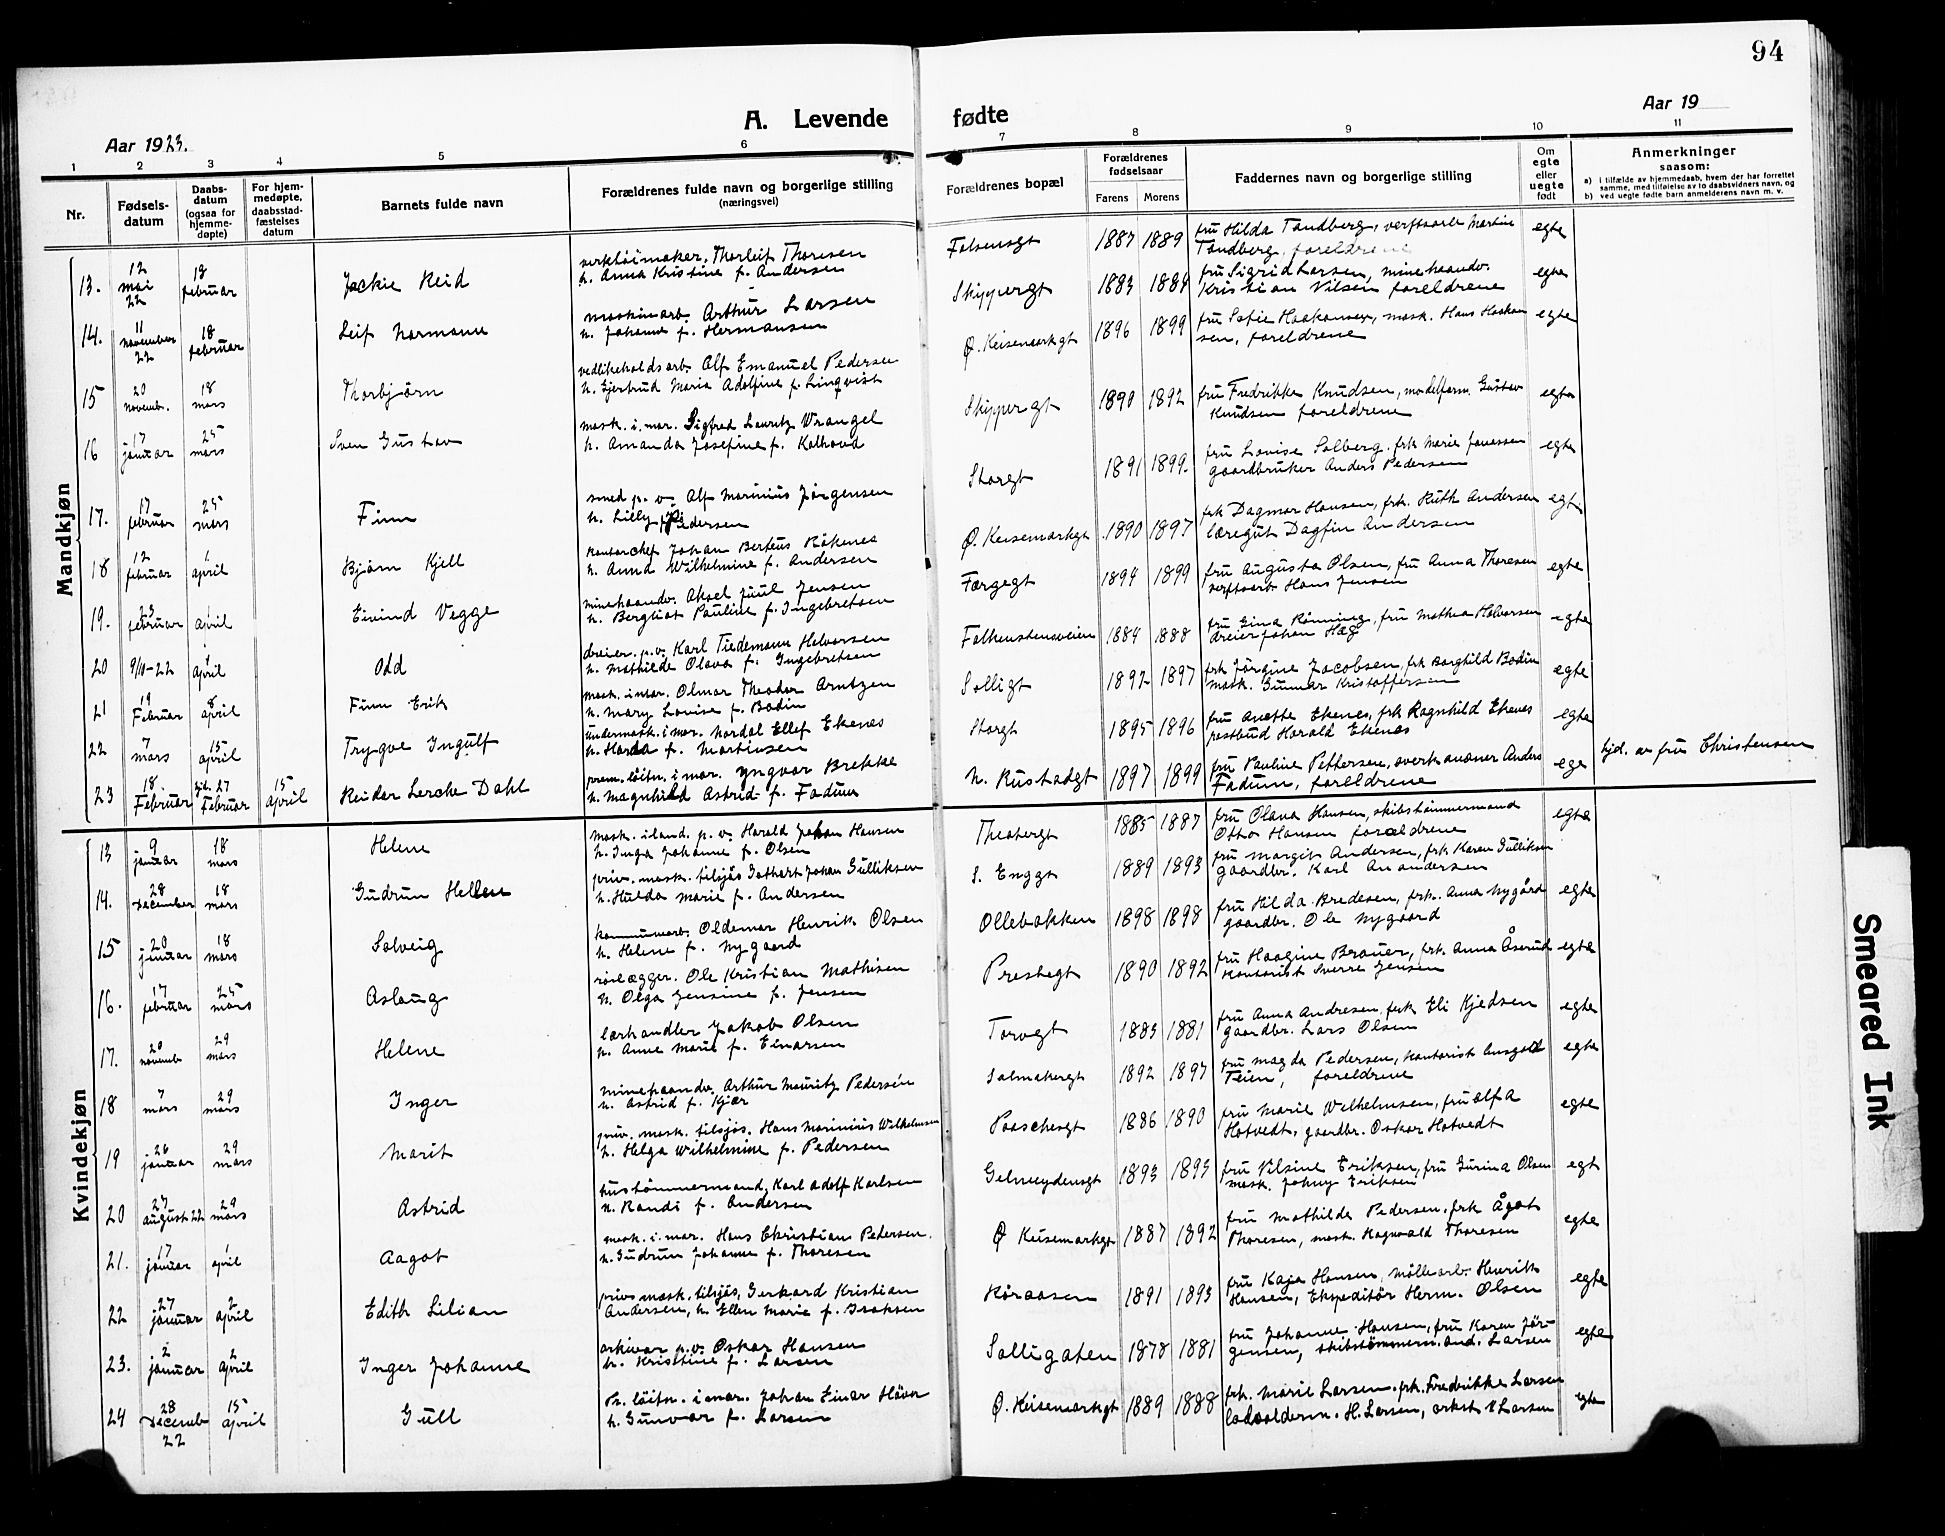 94
Aar 1923.
A. Levende fødte
Aar 19
1 2 3 4 5 6 7 8 9 10 11
Nr.
Fødsels-
datum
Daabs-
datum
(ogsaa for
hjemme-
døpte)
For hjem-
medøpte,
daabsstad-
fæstelses
datum
Barnets fulde navn
Forældrenes fulde navn og borgerlige stilling
(næringsvei)
Forældrenes bopæl
Forældrenes
fødselsaar
Farens Morens
Faddernes navn og borgerlige stilling
Om
egte
eller
uegte
født
Anmerkninger
saasom:
a) i tilfælde av hjemmedaab, hvem der har forrettet
samme, med tilføielse av to daabsvidners navn, og
b) ved uegte fødte barn anmelderens navn m. v.
Mandkjøn
13. 12 mai 22 18 februar Jackie Reid
verktøimaker. Thorleif Thoresen
h. Anna Kristine f. Andersen
Falsensgt 1887 1889
fru Hilda Tandberg, verftsarb. Martin
Tandberg, foreldrene
egte
14. 11 november 22 18 februar Leif Normann
maskinarb. Arthur Larsen
h. Johanne f. Hermansen
Skippergt 1883 1884
fru Sigrid Larsen, minehaandv.
Kristian Nilsen foreldrene
egte
15 20 novemb. 18 mars Thorbjørn
vedlikeholdsarb. Alf Emanuel Pedersen
h. Gjertrud Maria Adolfine f. Linqvist
Ø. Keisemarkgt 1896 1899
fru Sofie Haakonsen, mask. Hans Haakon
sen, foreldrene
egte
16 17 januar 25 mars Sven Gustav
mask. i. mar. Sigfred Lauritz Wrangel
h. Amanda Josefine f. Kolhovd
Skippergt 1890 1892
fru Fredrikke Knudsen, modelform. Gustav
Knudsen foreldrene
egte
17. 17 februar 25 mars Finn
smed p. v. Alf Marinius Jørgensen
h. Lilly f. Pedersen
Storgt 1891 1899.
fru Lovise Solberg. frk Marie Janassen
gaardbruker Anders Pedersen
egte
18 12 februar 1 april Bjørn Kjell
kontorchef Johan Berteus Røkenes
h. Anna Wilhelmine f. Andersen
Ø. Keisemarkgt 1890 1897
frk Dagmar Hansen, frk. Ruth Andersen
læregut Dagfin Andersen
egt.
19. 23 februar 1 april Eivind Vegge
minehaandv. Aksel Juul Jensen
h. Bergliot Pauline f. Ingebretsen
Færgegt 1894 1899
fru Augusta Olsen, fru Anna Thoresen
verftsarb. Hans Jensen
egte
20 9/10-22 1 april Odd
dreier. p.v. Karl Tiedemann Halvorsen
h. Mathilde Olava f. Ingebretsen
Falkenstensveien 1884 1888
fru Gina Rønning, fru Mathea Halvorsen
dreier Johan Hæg
egte
21 19 Februar 8 april Finn Erik
mask. i mar. Olmar Theodor Arntzen
h. Mary Lovise f. Bodin
Solligt 1892 1897
frk Jørgine Jacobsen, frk Borghild Bodin
mask. Gunnar Kristoffersen
egte
22 7 mars 15 april Trygve Ingulf
undermask. i mar. Nordal Ellef Ekenes
h. Harda f. Martinsen
Storgt 1895 1896
fru Anette Ekenes, frk Ragnhild Ekenes
postbud Harald Ekenes
egte
23 18. Februar hjd. 27 Februar 15 april Reidar Lerche Dahl
prem. løitn. i mar. Yngvar Brekke
h. Magnhild Astrid f. Fadum
N. Rustadgt 1897 1899
fru Pauline Pettersen, overkanoner Anders
Fadum, foreldrene
ege
hjd. av fru Christensen
Kvindekjøn
13 9 januar 18 mars Helene
mask. iland. p. v. Harald Johan Hansen
h. Inga Johanne f. Olsen
Theatergt 1885 1887
fru Olava Hansen, skibstømmermand
Otto Hansen foreldrene
egte
14. 28 December 18 mars Gudrun Hellen
priv. mask. tilsjøs Gothart Johan Gulliksen
h. Hulda Marie f. Andersen
S. Enggt 1889 1893
fru Margit Andersen, frk Karen Gulliksen
gaardbr. Karl An andersen
15 20 januar 18 mars Solveig
kommunearb. Oldemar Henrik Olsen
h. Helene f. Nygaard
Ollebakken 1898 1898
fru Hilda Bredesen, frk. Anna Nygård
gaardbr. Ole Nygaard
egte
16. 17 februar 25 mars Aslaug
rørlægger. Ole Kristian Mathisen
h. Olga Jensine f. Jensen
Prestegt 1890 1892
fru Haagine Brauer, frk. Anna Åserud
kontorist Sverre Jensen
egte
17. 20 novemb 29 mars Helene
lærhandler Jakob Olsen
h. Anne Marie f. Einarsen
Torvgt 1883 1881
fru Anna Andresen, frk Eli Kjedsen
gaardbr. Lars Olsen
egte
18 7 mars 29 mars Inger
minehaandv. Arthur Mauritz Pedersen
h. Astrid f. Kjær
Salmakergt 1892 1897
fru Magda Pedersen, kontorist Ansgod
Teien, foreldrene
egte
19 26 januar 29 mars Marit
priv. mask. tilsjøs. Hans Marinius Wilhelmsen
h. Helga Wilhelmine f. Pedersen
Paaschesgt 1886 1890
fru Marie Wilhelmsen, fru Alfa
Hotvedt, gaardbr. Oskar Hotvedt
egte
20 27 august 22 29 mars Astrid
hustømmermand, Karl Adolf Karlsen
h. Randi f. Andersen
Gelmeydensgt 1893 1893
fru Nilsine Eriksen, fru Gurina Olsen
mask. Johny Eriksen
egt
21. 17 januar 1 april Aagot
mask. i. mar. Hans Christian Pedersen.
h. Gudrun Johanne f. Thoresen
Ø Keisemarkgt 1887 1892
fru Mathilde Pedersen, frk Ågot
Thoresen, mask. Ragnvald Thoresen
egte
22 27 januar 2 april Edith Lilian
priv mask. tilsjøs, Gerhard Kristian
Andersen, h. Ellen Marie f. Isaksen
Køraasen 1891 1893
fru Kaja Hansen, Møllearb. Henrik
Hansen, Ekspeditør Herm. Olsen
egte
23. 2 januar 2 april Inger Johanne
arkivar p.v. Oskar Hansen
h. Kristine f. Larsen
Solligaten 1878 1881
fru Johanne Hansen, fru Karen Jør-
gensen, skibstømmerm. And. Larsen
egte
24 28 Decemb 22 15 april Gull
Pr. løitn. i mar. Johan Einar Håver
h. Gunvor f. Larsen
Ø. Keisemarkgt 1889 1888
frk. Marie Larsen, frk. Fredrikke Larsen
lodsolderm. H. Larsen, arkit. Larsen
egte
Smeared Ink